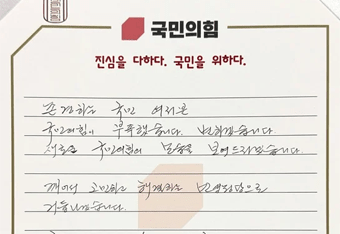 국민의힘
진심을 다하다. 국민을 위하다.
존경하는 국민 여러분
국민의힘이 부족했습니다. 변하겠습니다.
새로운 국민의힘의 모습을 보여드리겠습니다.
깨어서 고민하고 해결하는 민생정당으로
거듭나겠습니다.